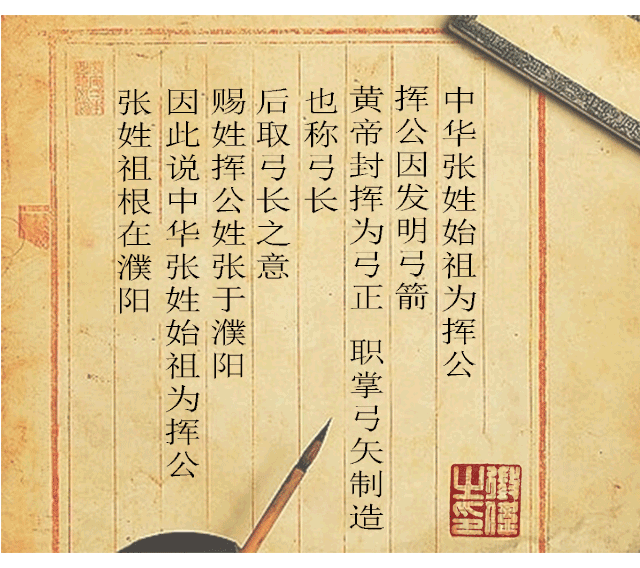 中华张姓始祖为挥公
挥公因发明弓箭
黄帝封挥为弓正 职掌弓矢制造
也称弓长
后取弓长之意
赐姓挥公姓张于濮阳
因此说中华张姓始祖为挥公
张姓祖根在濮阳